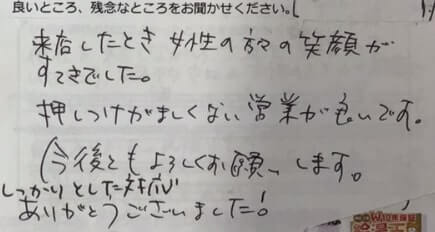 良いところ、残念なところをお聞かせください。(
来店したとき女性の方々の笑顔が
すてきでした。
押しつけがましくない営業が良いです。
今後ともよろしくお願いします。
しっかりとした対応
ありがとうございました!